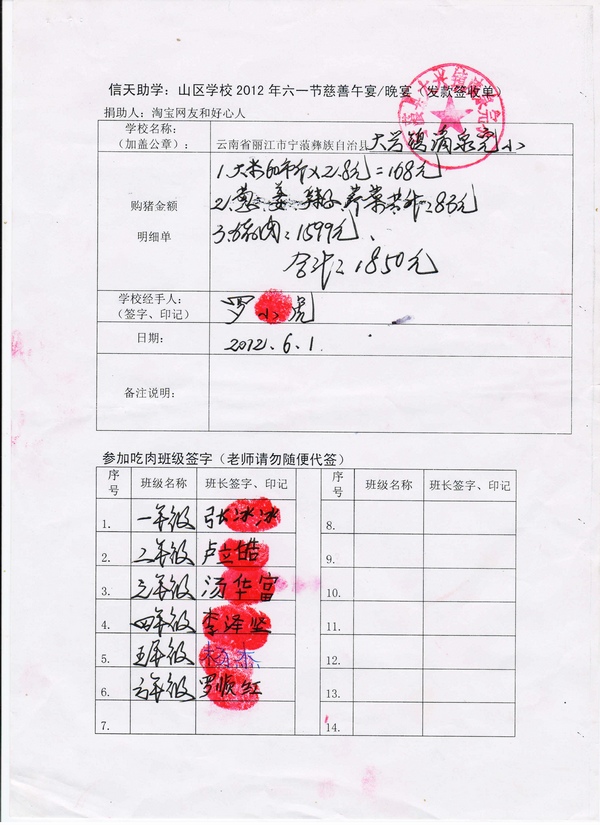 信天助学：山区学校2012年六一节慈善午宴/晚宴（发款签收单）
捐助人：淘宝网友和好心人
学校名称：
（加盖公章）：
云南省丽江市宁蒗彝族自治县大兴镇滴泉完小
购猪金额
明细单
1.大米60市斤×2.8元=168元
2.葱、姜、辣子、养菜共计：83元
3.猪肉：1599元、
合计：1850元
学校经手人：
（签字、印记）
罗小虎
日期：
2012.6.1
备注说明：
参加吃肉班级签字（老师请勿随便代签）
序号 班级名称 班长签字、印记 序号 班级名称 班长签字、印记
1. 一年级 张冰冰 8.
2. 二年级 卢立皓 9.
3. 三年级 汤华富 10.
4. 四年级 李泽坚 11.
5. 五年级 杨杰 12.
6. 六年级 罗顺红 13.
7. 14.